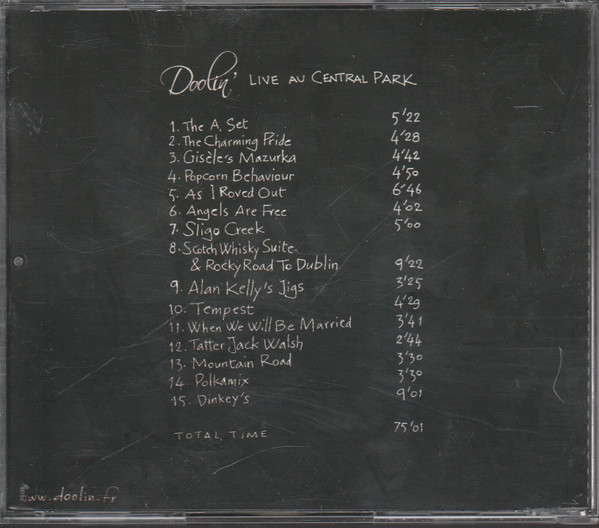 Doolin' LIVE AU CENTRAL PARK
1. The A. Set 5'22
2. The Charming Pride 4'28
3. Gisèle's Mazurka 4'42
4. Popcorn Behaviour 4'50
5. As I Roved Out 6'46
6. Angels Are Free 4'02
7. Sligo Creek 5'00
8. Scotch Whisky Suite
& Rocky Road To Dublin 9'22
9. Alan Kelly's Jigs 3'25
10. Tempest 4'29
11. When We Will Be Married 3'41
12. Tatter Jack Walsh 2'44
13. Mountain Road 3'30
14. Polkamix 3'30
15. Dinkey's 9'01
TOTAL TIME 75'01
www.doolin.fr